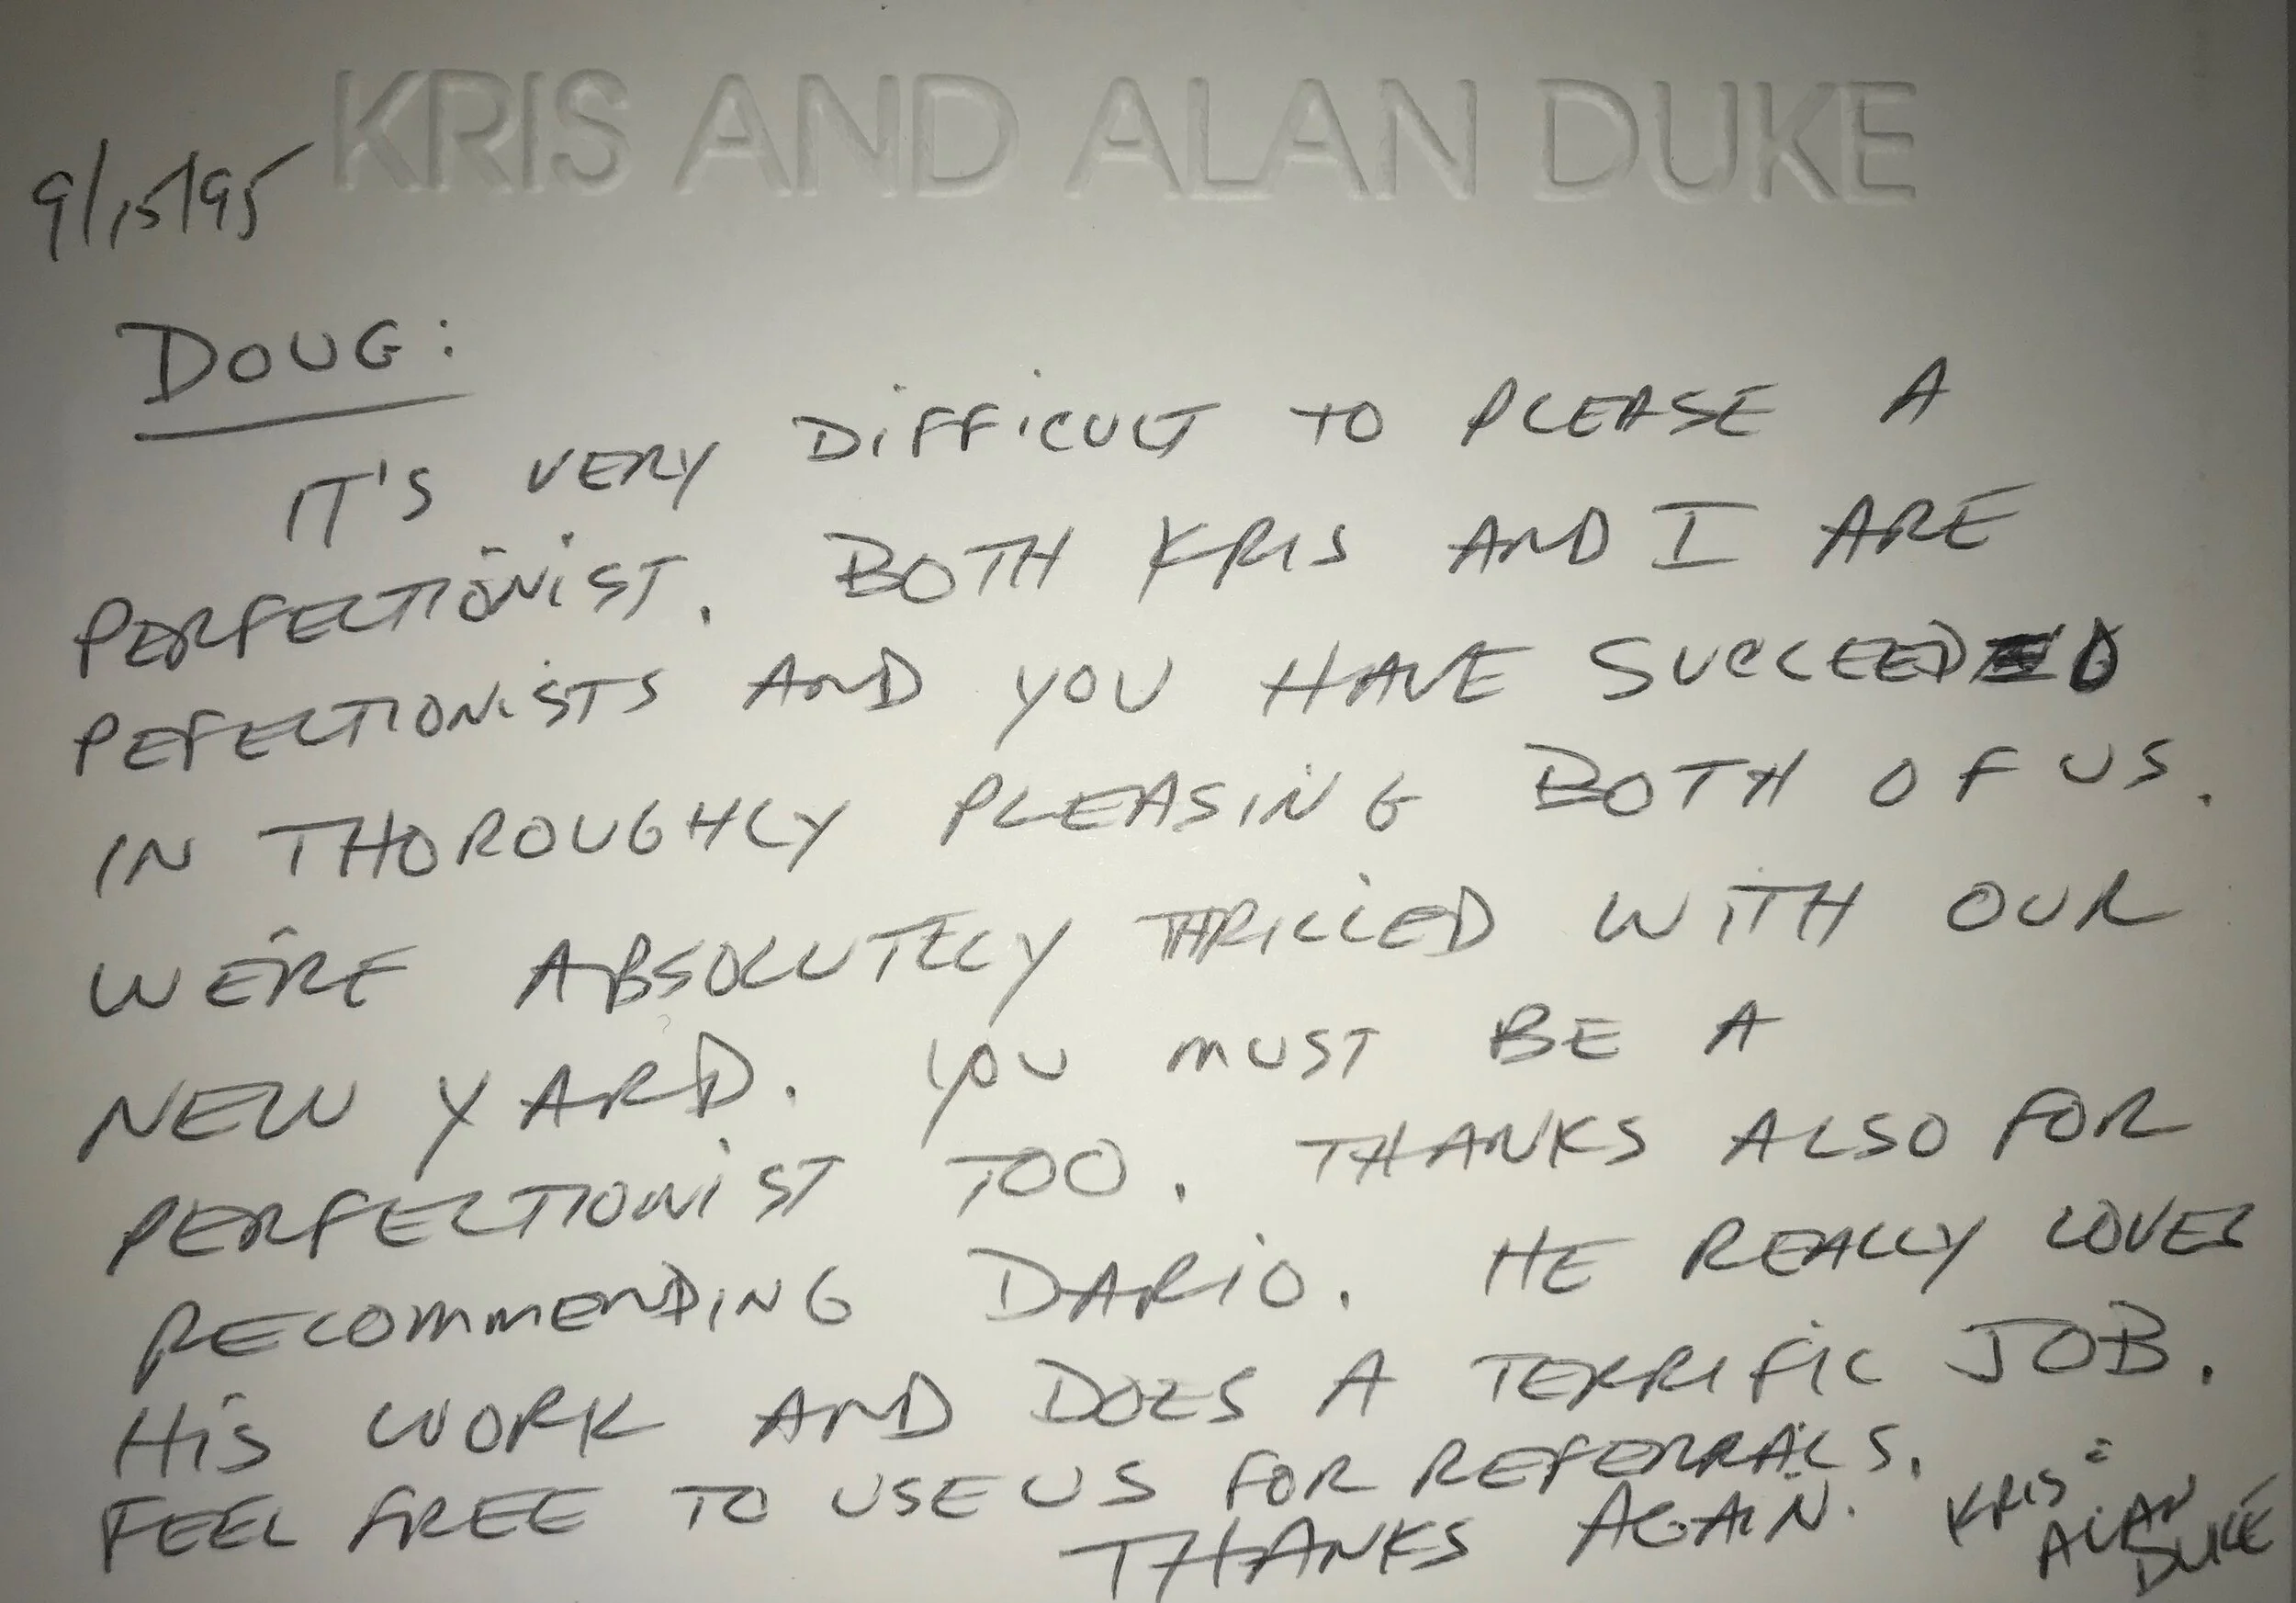 KRIS AND ALAN DUKE
9/15/95
DOUG:
IT'S VERY DIFFICULT TO PLEASE A
PERFECTIONIST. BOTH KRIS AND I ARE
PEFECTIONISTS AND YOU HAVE SUCCEEDED
IN THOROUGHLY PLEASING BOTH OF US.
WE'RE ABSOLUTELY THRILLED WITH OUR
NEW YARD. YOU MUST BE A
PERFECTIONIST TOO. THANKS ALSO FOR
RECOMMENDING DARIO. HE REALLY LOVES
HIS WORK AND DOES A TERRIFIC JOB.
FEEL FREE TO USE US FOR REFERRALS.
THANKS AGAIN. KRIS &
ALAN
DUKE